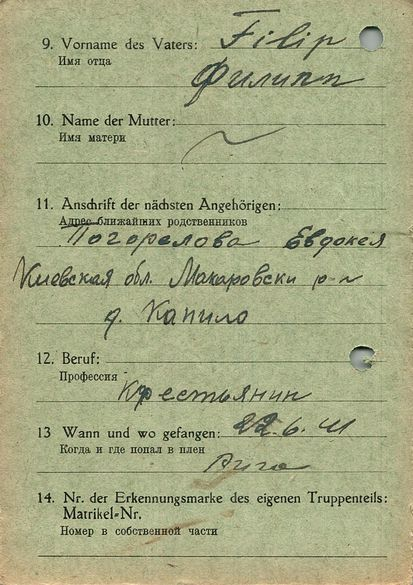 9. Vorname des Vaters: Filip
Имя отца
Филипп
10. Name der Mutter:
Имя матери
11. Anschrift der nächsten Angehörigen:
Адрес ближайших родственников
Погорелова Евдокея
Киевская обл. Макаровски р-н
д. Капило
12. Beruf:
Профессия
Крестьянин
13 Wann und wo gefangen: 22.6.41
Когда и где попал в плен
14. Nr. der Erkennungsmarke des eigenen Truppenteils:
Matrikel=Nr.
Номер в собственной части